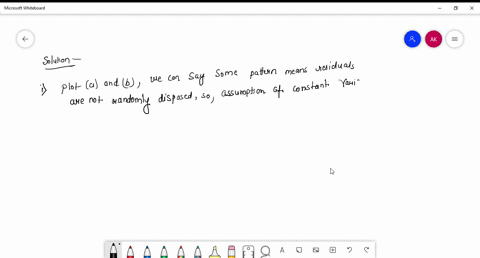 Microsoft Whiteboard
AK
Solution -
i) plot (a) and (b), we can say some pattern means residuals
are not randomly disposed, so, assumption of constant vari